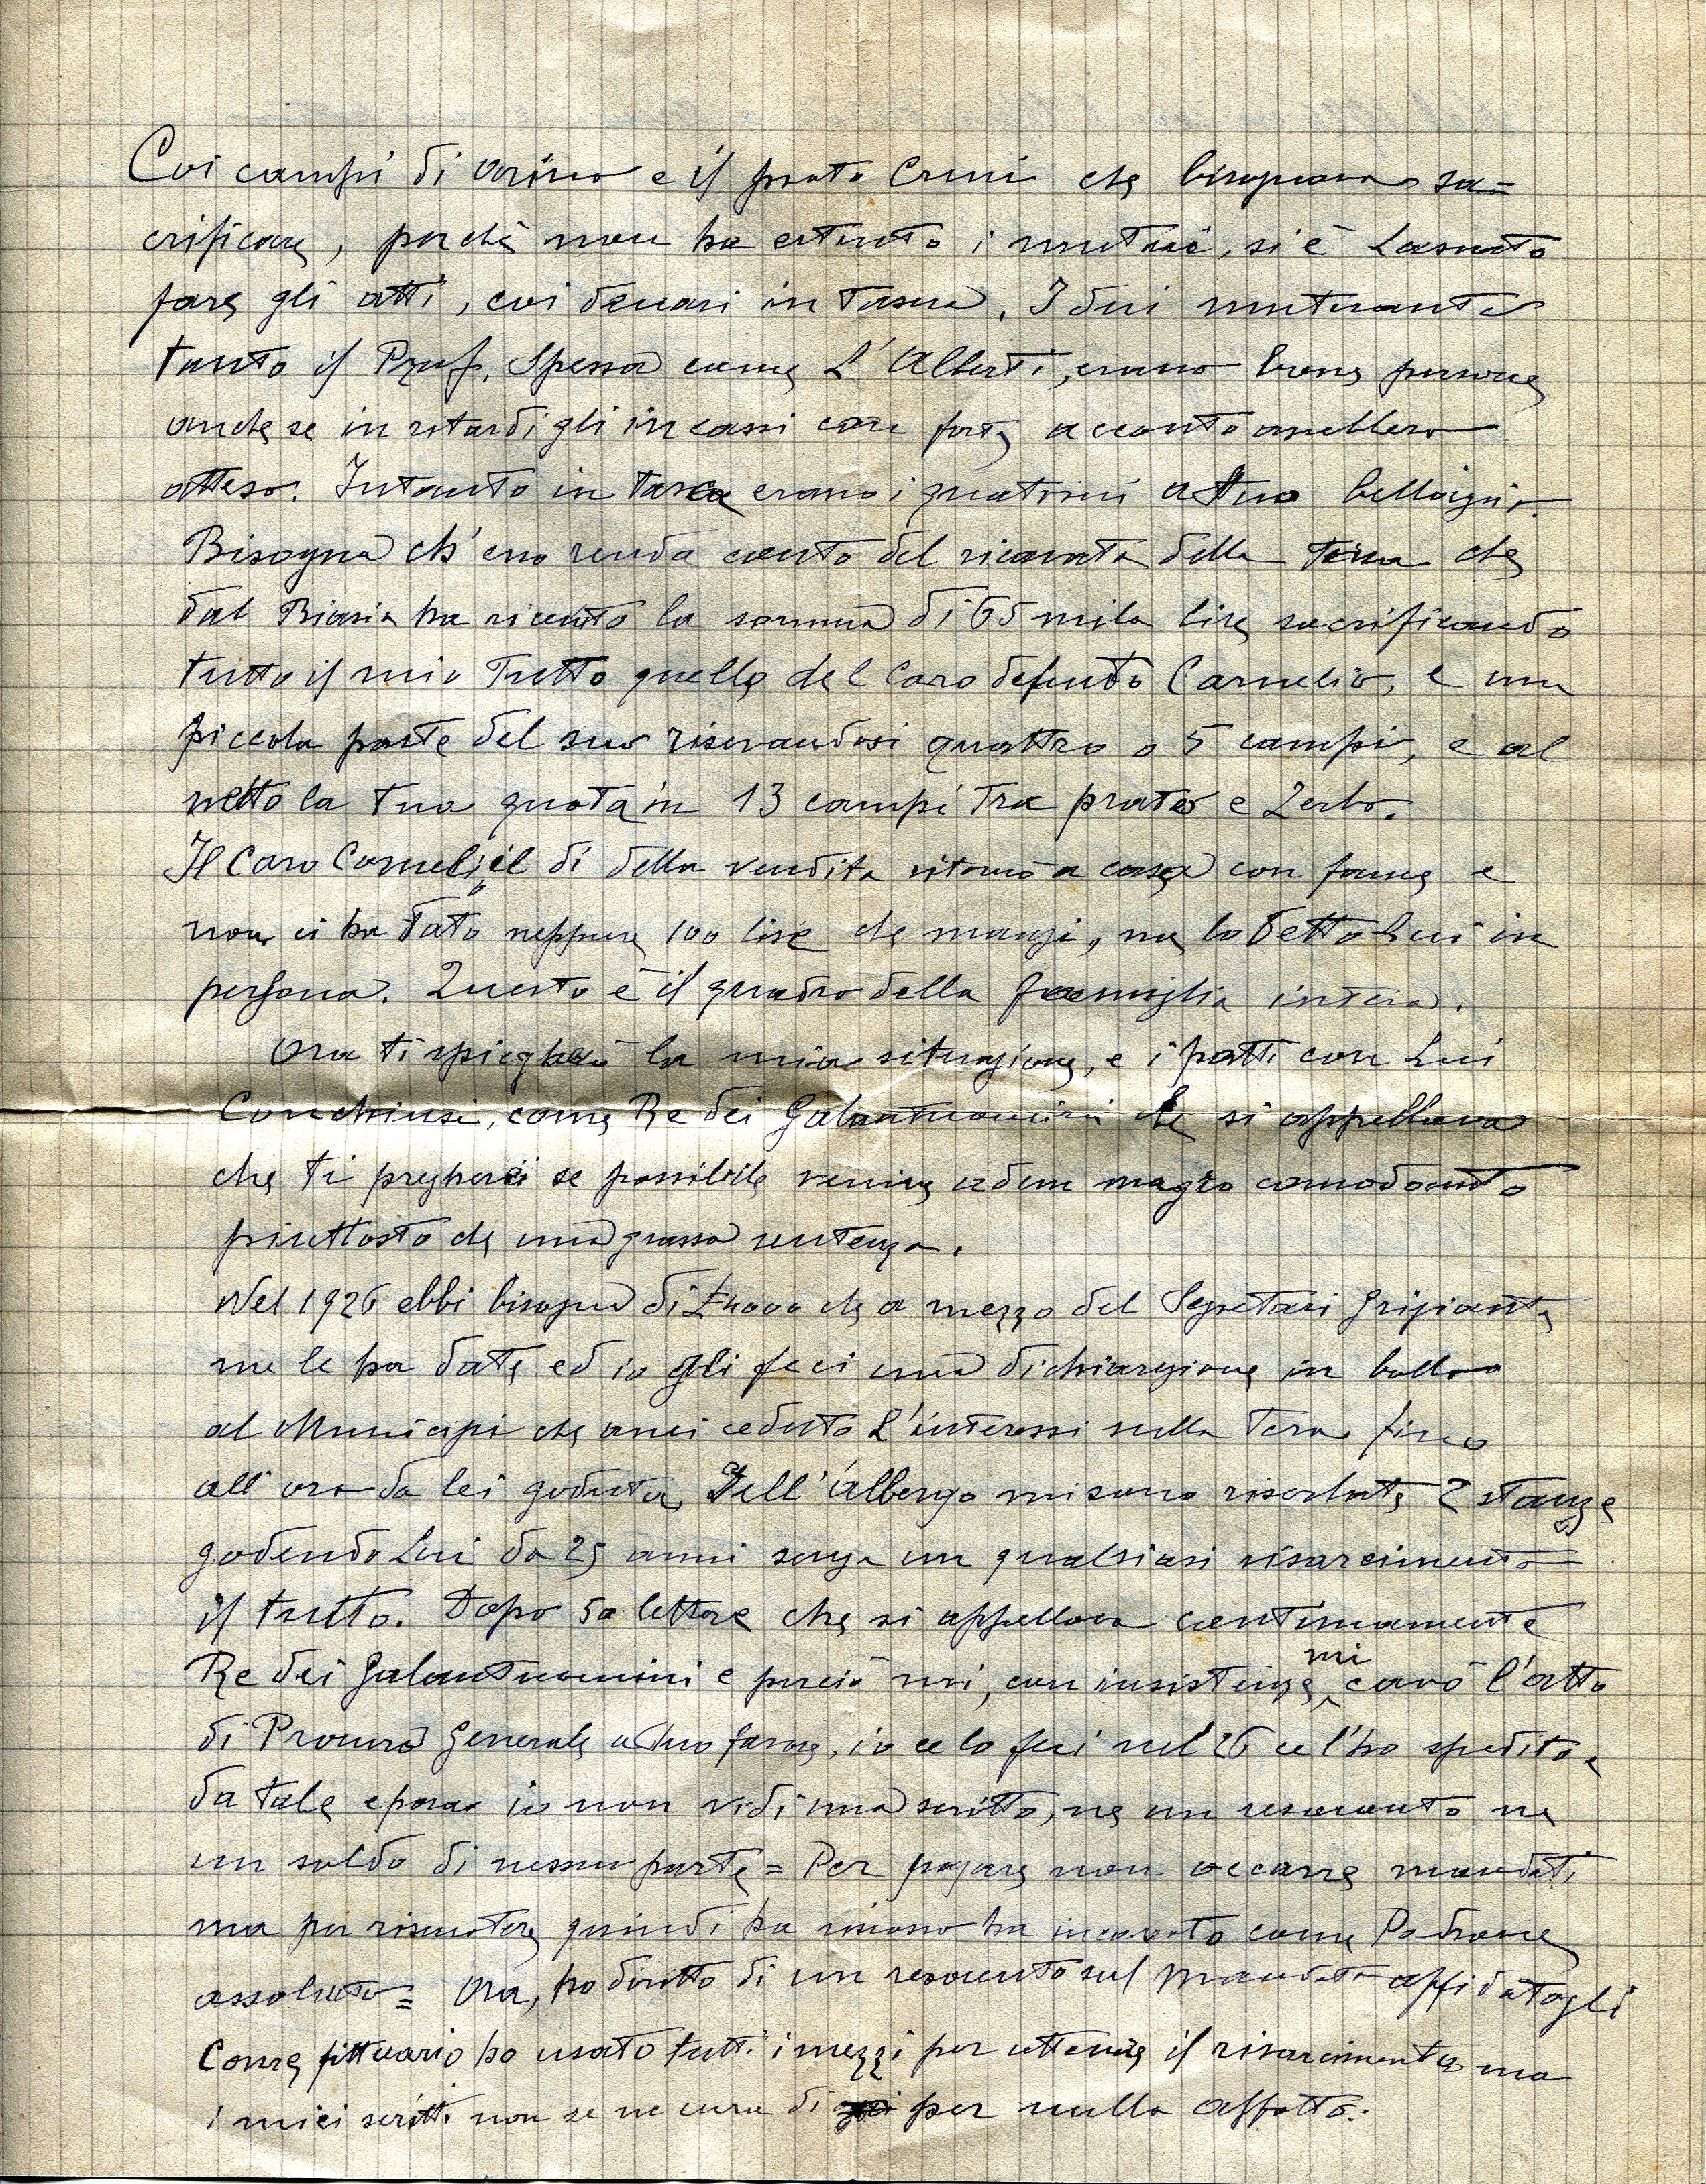 Coi campi di e il prato Cruni che bisognava sa=
crificare, perchè non ha estinto i mutui, si è lasciato
fare gli atti, coi denari in tasca. I due mutuanti
tanto il Prof. Spessa come L'Alberti, erano brave persone
anche se in ritardi gli incassi con forte acconto
atteso. Intanto in tasca erano i quatrini a suo bell'agio.
Bisogna ch'esso renda conto del ricavato della terra che
dal Biasia ha ricevuto la somma di 65 mila lire sacrificando
tutto il mio Tutto quello del Caro defunto Carmelio, e una
piccola parte del suo riservandosi quattro o 5 campi, e al
netto la tua quota in 13 campi Tra prato e Zerbo.
Il Caro Cornelio il di della vendita ritornò a casa con fame e
non ci ha dato neppure 100 lire che mangi, me lo detto Lui in
persona. Questo è il quadro della famiglia intera.
Ora ti spiegherò la mia situazione, e i patti con Lui
Conchiusi, come Re dei Galantuomini che si appellava
che ti pregherei se possibile venire ad un magro comodamento
piuttosto che una grassa sentenza.
Nel 1926 ebbi bisogno di £4000 che a mezzo del Segretari Grigiante
me le ha date ed io gli feci una dichiarazione in bollo
al Municipi che avrei ceduto L'interessi sulla Terra fino
all'ora da lei goduta, Dell'albergo mi sono riserbate 2 stanze
godendo Lui da 25 anni senza un qualsiasi risarcimento
il tutto. Dopo 50 lettere che si appellava continuamente
Re dei Galantuomini e perciò mi, con insistenza mi cavò l'atto
di Procura Generale a suo favore, io ce lo feci nel 26 ce l'ho spedito e
da tale epoca io non vidi uno scritto, ne un resoconto ne
un soldo di nessun parte = Per pagare non occorre mandati
ma per riscuotere quindi ha riscosso ha incassato come Padrone
assoluto = Ora, ho diritto di un resoconto sul mandato affidatogli
Come fittuario ho usato tutti i mezzi per ottenere il risarcimento ma
i miei scritti non se ne cura di per nulla affatto.